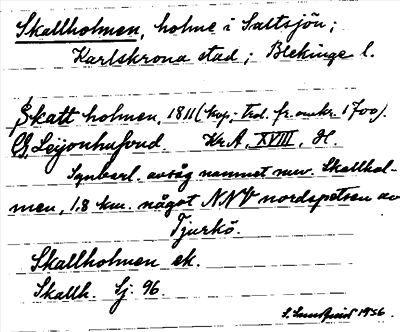 Skallholmen, holme i Saltsjön;
Karlskrona stad; Blekinge l.
Skatt holmen, 1811 (kop; trol. fr. omkr. 1700).
G. Leijonhufvud. Kr.A, XVIII, H.
Synbarl. avsåg namnet nuv. Skallhol-
men, 1.8 km. något NNV nordspetsen av
Tjurkö.
Skallholmen ek.
Skallh. Sj. 96.
1956.